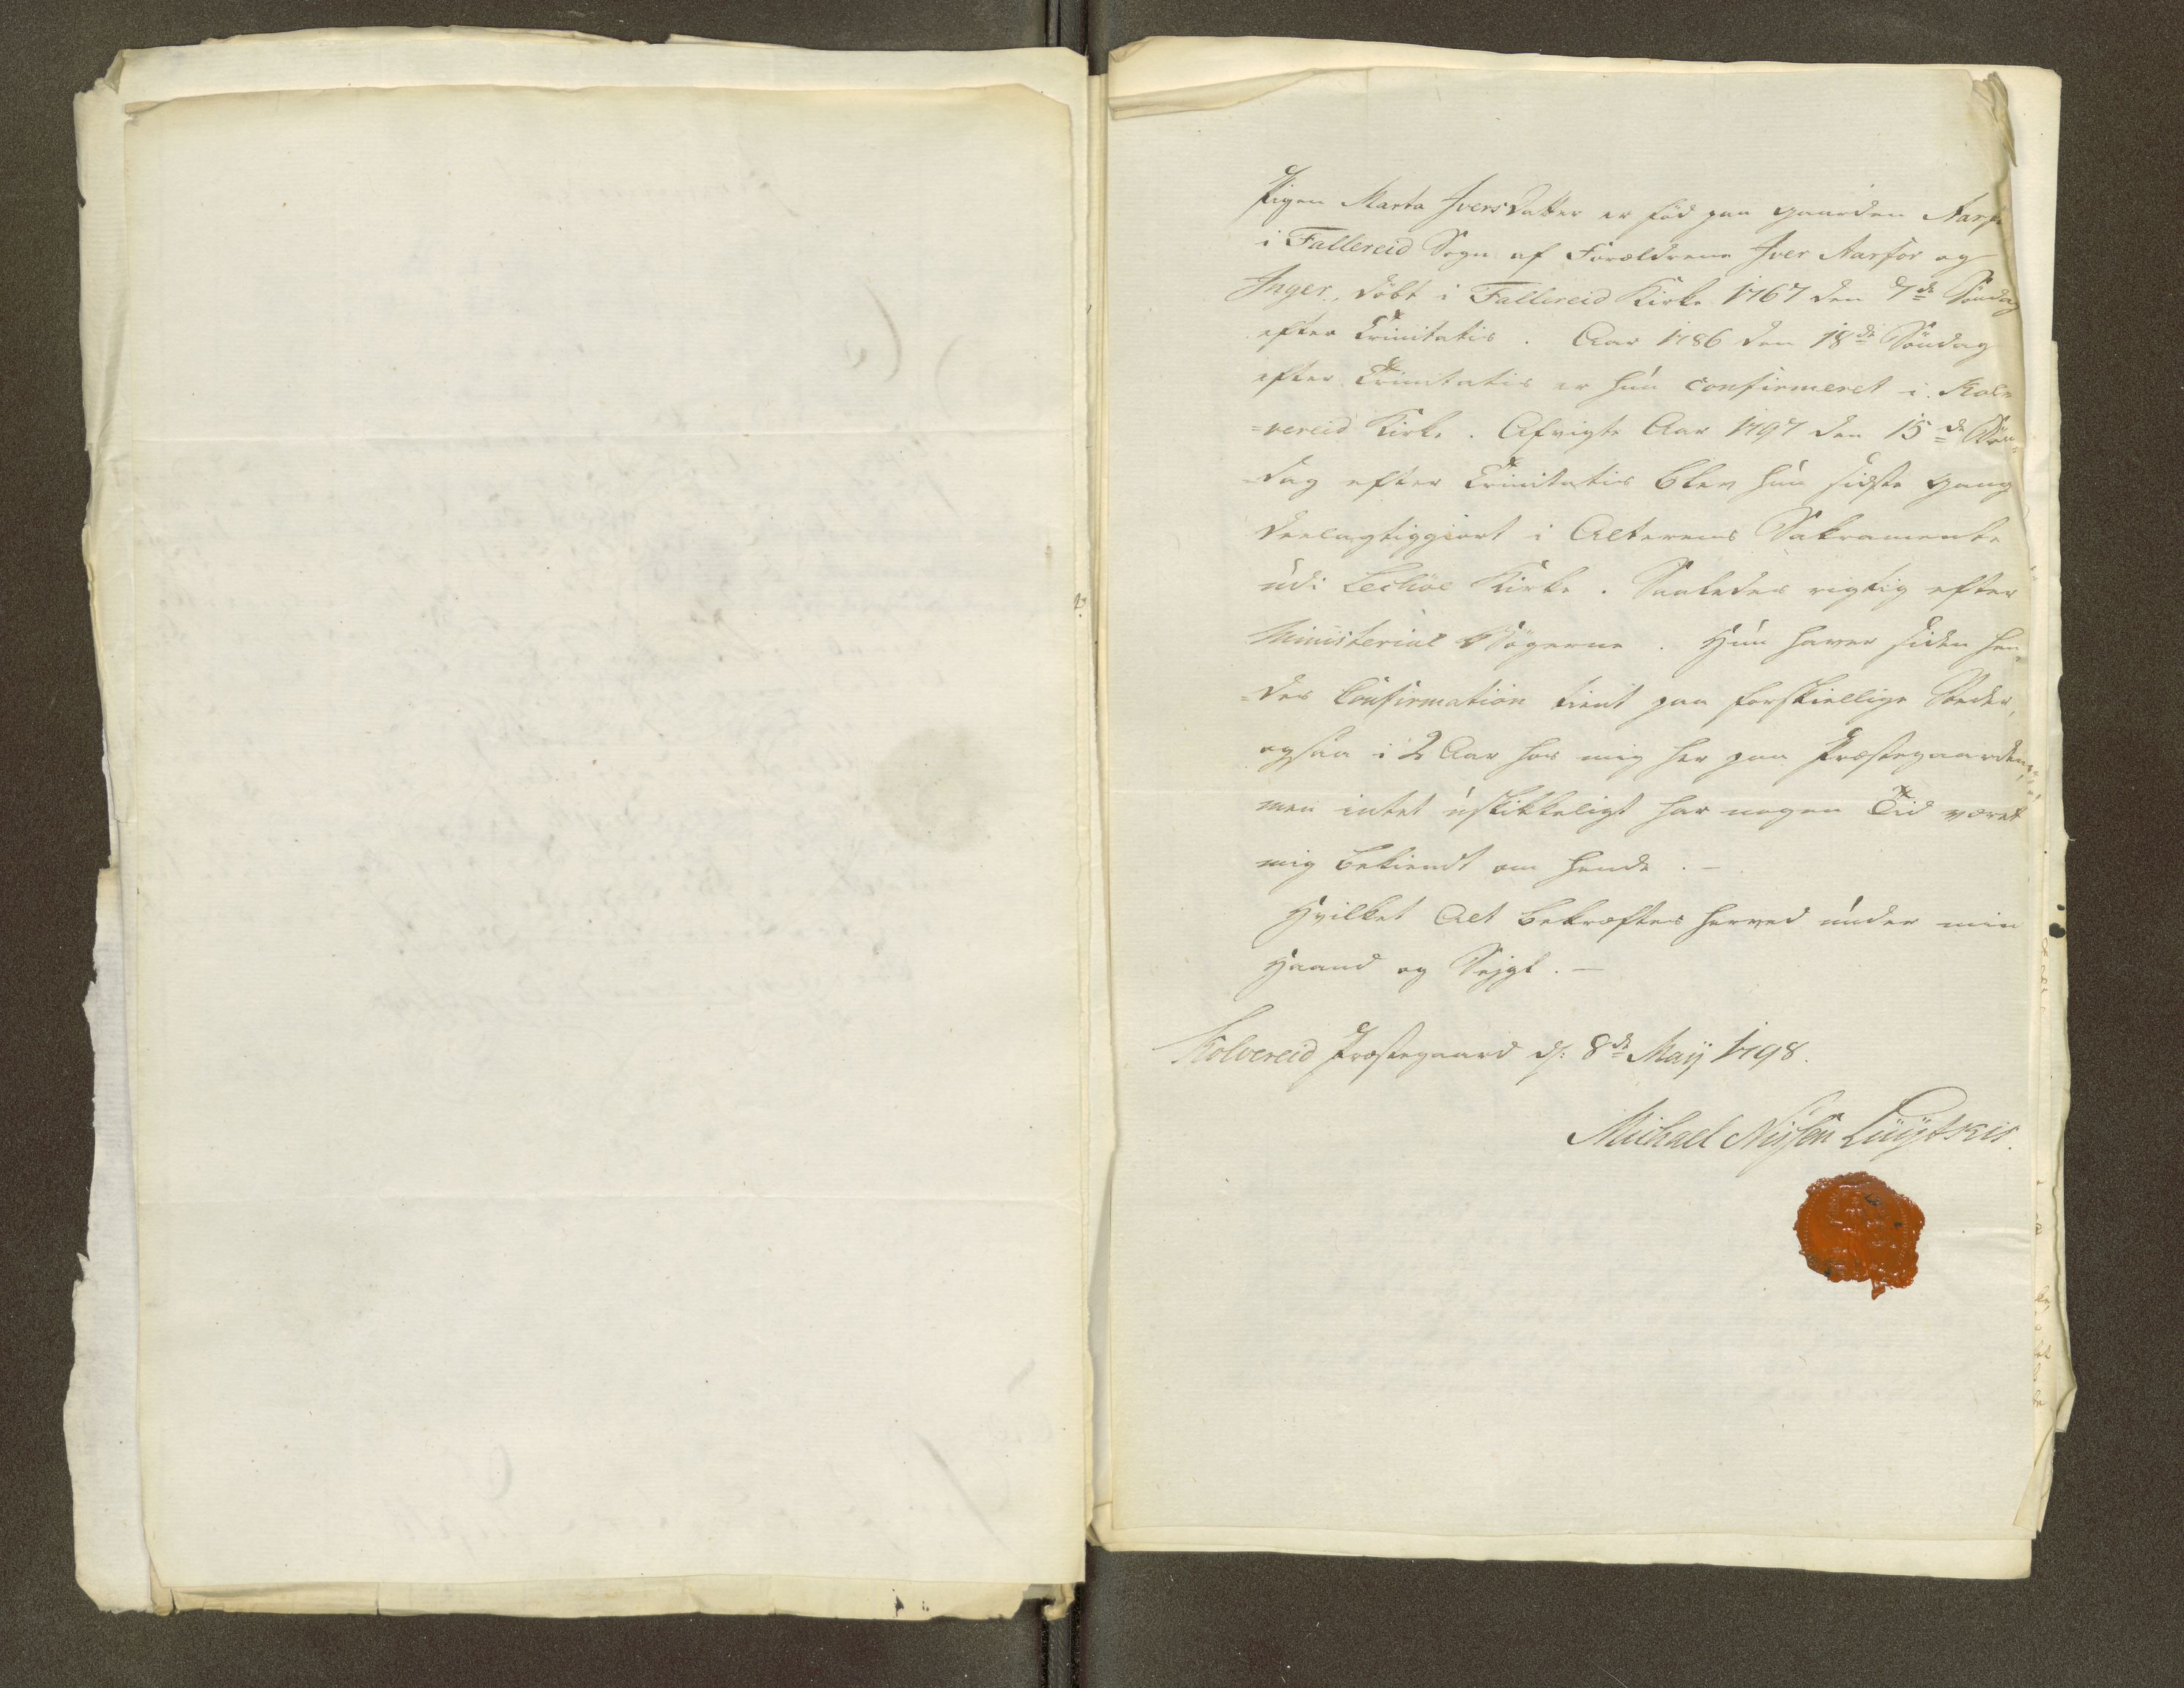 Pigen Marta Iversdatter er föd paa Gaarden Aarfo
i Fallereid Sogn af Forældrene Iver Aarfor og
Inger, döbt i Fallereid Kirke 1767 den 7de Söndag
efter Trinitatis. Aar 1786 den 18de Söndag
efter Trinitatis er hun confirmeret i Kol
=vereid Kirke. Afvigte Aar 1797 den 15de Sön=
=dag efter Trinitatis blev hun sidste Gang
deelagtiggiort i Alterens Sakramente
udi Leckiöe Kirke. Saaledes rigtig efter
Ministerial Bögerne. Hun haver siden hen=
=des Confirmation tient paa forskiellige Steder,
ogsaa i 2 Aar hos mig her paa Præstegaarden,
men intet uskikkeligt har nogen Tid været
mig bekiendt om hende. -
Hvilket Alt bekræftes herved under min
Haand og Sejgl. -
Kolvereid Præstegaard d: 8de Maij 1798.
Michael Nysön Luytkis.